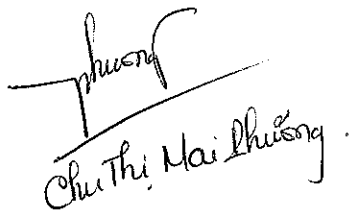 Phương
Chu Thị Mai Phương.